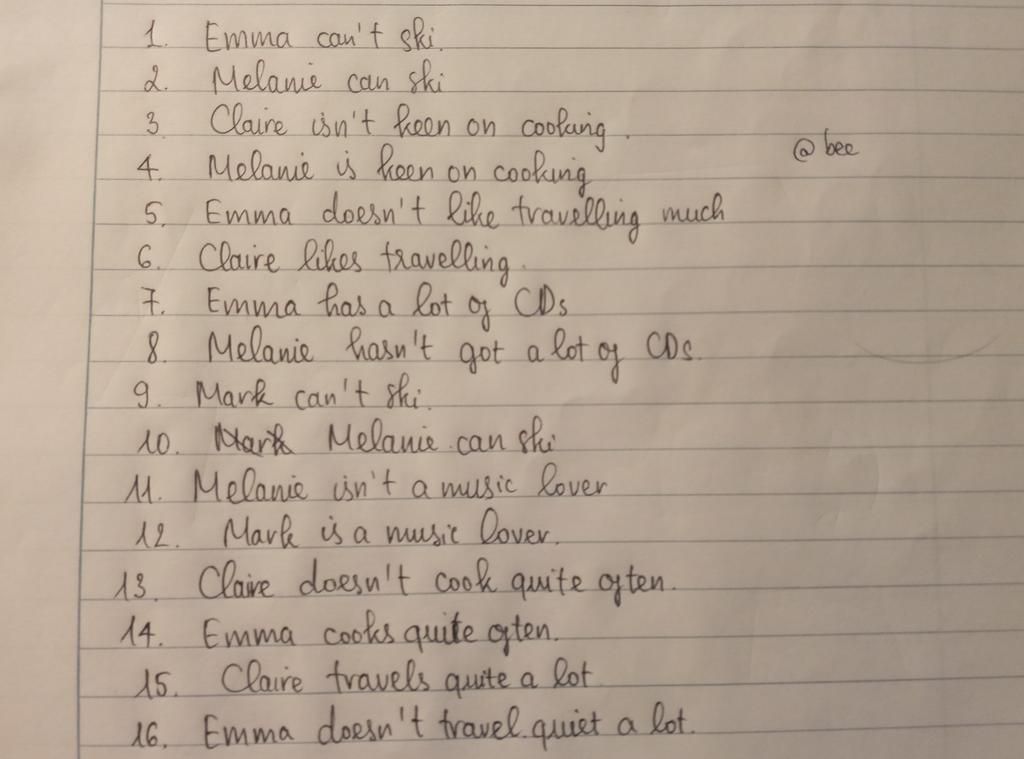 1. Emma can't ski.
2. Melanie can ski
3. Claire isn't keen on cooking.
@bee
4. Melanie is keen on cooking
5. Emma doesn't like travelling much
6. Claire likes travelling.
7. Emma has a lot of CDs
8. Melanie hasn't got a lot of CDs.
9. Mark can't ski.
10. Mark Melanie can ski
11. Melanie isn't a music lover
12. Mark is a music lover.
13. Claire doesn't cook quite often.
14. Emma cooks quite often.
15. Claire travels quite a lot
16. Emma doesn't travel quiet a lot.